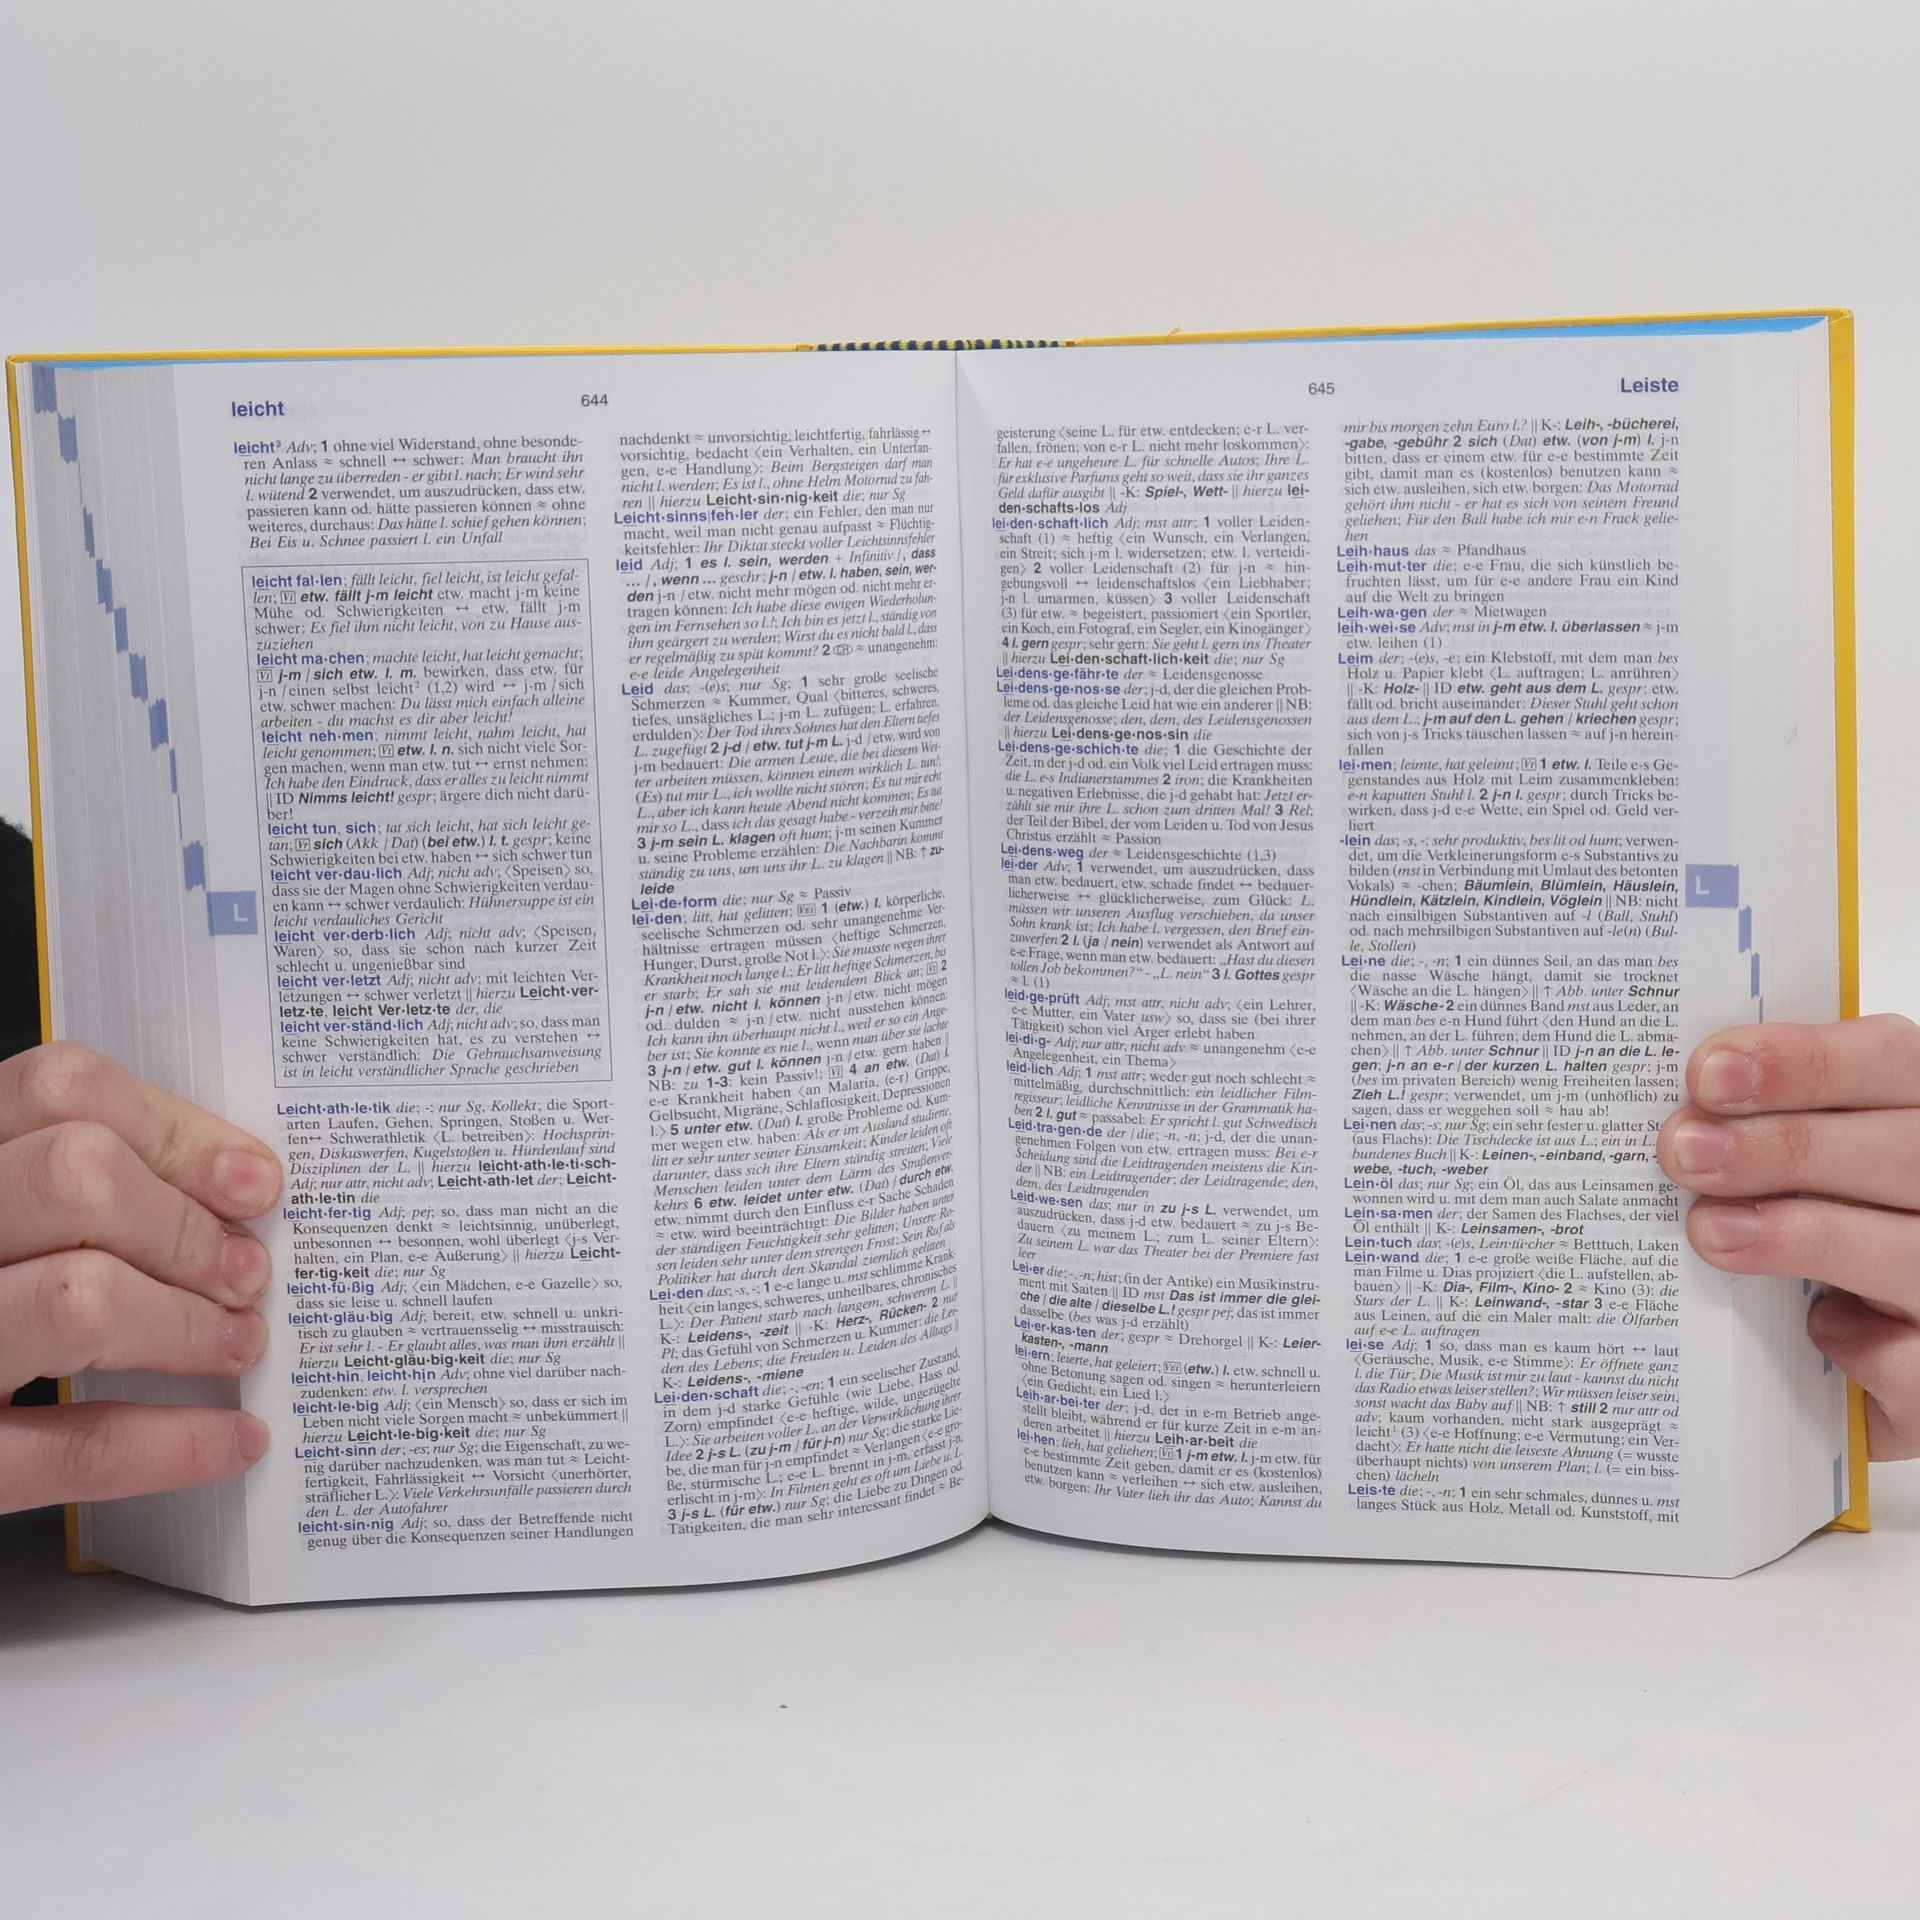 leicht
644
leicht³ Adv; 1 ohne viel Widerstand, ohne besonde-
ren Anlass ≈ schnell ↔ schwer: Man braucht ihn
nicht lange zu überreden - er gibt l. nach; Er wird sehr
l. wütend 2 verwendet, um auszudrücken, dass etw.
passieren kann od. hätte passieren können ≈ ohne
weiteres, durchaus: Das hätte l. schief gehen können;
Bei Eis u. Schnee passiert l. ein Unfall
leicht fal·len; fällt leicht, fiel leicht, ist leicht gefal-
len; Vi etw. fällt j-m leicht etw. macht j-m keine
Mühe od. Schwierigkeiten ↔ etw. fällt j-m
schwer: Es fiel ihm nicht leicht, von zu Hause aus-
zuziehen
leicht ma·chen; machte leicht, hat leicht gemacht;
Vt j-m / sich etw. l. m. bewirken, dass etw. für
j-n / einen selbst leicht² (1,2) wird ↔ j-m / sich
etw. schwer machen: Du lässt mich einfach alleine
arbeiten - du machst es dir aber leicht!
leicht neh·men; nimmt leicht, nahm leicht, hat
leicht genommen; Vt etw. l. n. sich nicht viele Sor-
gen machen, wenn man etw. tut ↔ ernst nehmen:
Ich habe den Eindruck, dass er alles zu leicht nimmt
|| ID Nimms leicht! gespr; ärgere dich nicht darü-
ber!
leicht tun, sich; tat sich leicht, hat sich leicht ge-
tan; Vr sich (Akk / Dat) (bei etw.) l. t. gespr; keine
Schwierigkeiten bei etw. haben ↔ sich schwer tun
leicht ver·dau·lich Adj; nicht adv; ⟨Speisen⟩ so,
dass sie der Magen ohne Schwierigkeiten verdau-
en kann ↔ schwer verdaulich: Hühnersuppe ist ein
leicht verdauliches Gericht
leicht ver·derb·lich Adj; nicht adv; ⟨Speisen,
Waren⟩ so, dass sie schon nach kurzer Zeit
schlecht u. ungenießbar sind
leicht ver·letzt Adj; nicht adv; mit leichten Ver-
letzungen ↔ schwer verletzt || hierzu Leicht·ver-
letz·te, leicht Ver·letz·te der, die
leicht ver·ständ·lich Adj; nicht adv; so, dass man
keine Schwierigkeiten hat, es zu verstehen ↔
schwer verständlich: Die Gebrauchsanweisung
ist in leicht verständlicher Sprache geschrieben
Leicht·ath·le·tik die; -; nur Sg, Kollekt; die Sport-
arten Laufen, Gehen, Springen, Stoßen u. Wer-
fen ↔ Schwerathletik ⟨L. betreiben⟩: Hochsprin-
gen, Diskuswerfen, Kugelstoßen u. Hürdenlauf sind
Disziplinen der L. || hierzu leicht·ath·le·ti·sch-
Adj; nur attr, nicht adv; Leicht·ath·let der; Leicht-
ath·le·tin die
leicht·fer·tig Adj; pej; so, dass man nicht an die
Konsequenzen denkt ≈ leichtsinnig, unüberlegt,
unbesonnen ↔ besonnen, wohl überlegt ⟨j-s Ver-
halten, ein Plan, e-e Äußerung⟩ || hierzu Leicht-
fer·tig·keit die; nur Sg
leicht·fü·ßig Adj; ⟨ein Mädchen, e-e Gazelle⟩ so,
dass sie leise u. schnell laufen
leicht·gläu·big Adj; bereit, etw. schnell u. unkri-
tisch zu glauben ≈ vertrauensselig ↔ misstrauisch:
Er ist sehr l. - Er glaubt alles, was man ihm erzählt ||
hierzu Leicht·gläu·big·keit die; nur Sg
leicht·hin, leicht·hin Adv; ohne viel darüber nach-
zudenken: etw. l. versprechen
leicht·le·big Adj; ⟨ein Mensch⟩ so, dass er sich im
Leben nicht viele Sorgen macht ≈ unbekümmert ||
hierzu Leicht·le·big·keit die; nur Sg
Leicht·sinn der; -es; nur Sg; die Eigenschaft, zu we-
nig darüber nachzudenken, was man tut ≈ Leicht-
fertigkeit, Fahrlässigkeit ↔ Vorsicht ⟨unerhörter,
sträflicher L.⟩: Viele Verkehrsunfälle passieren durch
den L. der Autofahrer
leicht·sin·nig Adj; so, dass der Betreffende nicht
genug über die Konsequenzen seiner Handlungen
nachdenkt ≈ unvorsichtig, leichtfertig, fahrlässig ↔
vorsichtig, bedacht ⟨ein Verhalten, ein Unterfan-
gen, e-e Handlung⟩: Beim Bergsteigen darf man
nicht l. werden; Es ist l., ohne Helm Motorrad zu fah-
ren || hierzu Leicht·sin·nig·keit die; nur Sg
Leicht·sinns|feh·ler der; ein Fehler, den man nur
macht, weil man nicht genau aufpasst ≈ Flüchtig-
keitsfehler: Ihr Diktat steckt voller Leichtsinnsfehler
leid Adj; 1 es l. sein, werden + Infinitiv /, dass
... /, wenn ... geschr; j-n / etw. l. haben, sein, wer-
den j-n / etw. nicht mehr mögen od. nicht mehr er-
tragen können: Ich habe diese ewigen Wiederholun-
gen im Fernsehen so l.!; Ich bin es jetzt l., ständig von
ihm geärgert zu werden; Wirst du es nicht bald l., dass
er regelmäßig zu spät kommt? 2 CH ≈ unangenehm:
e-e leide Angelegenheit
Leid das; -(e)s; nur Sg; 1 sehr große seelische
Schmerzen ≈ Kummer, Qual ⟨bitteres, schweres,
tiefes, unsägliches L.; j-m L. zufügen; L. erfahren,
erdulden⟩: Der Tod ihres Sohnes hat den Eltern tiefes
L. zugefügt 2 j-d / etw. tut j-m L. j-d / etw. wird von
j-m bedauert: Die armen Leute, die bei diesem Wet-
ter arbeiten müssen, können einem wirklich L. tun!;
(Es) tut mir L., ich wollte nicht stören; Es tut mir echt
L., aber ich kann heute Abend nicht kommen; Es tut
mir so L., dass ich das gesagt habe - verzeih mir bitte!
3 j-m sein L. klagen oft hum; j-m seinen Kummer
u. seine Probleme erzählen: Die Nachbarin kommt
ständig zu uns, um uns ihr L. zu klagen || NB: ↑ zu-
leide
Lei·de·form die; nur Sg ≈ Passiv
lei·den; litt, hat gelitten; Vt/i 1 (etw.) l. körperliche,
seelische Schmerzen od. sehr unangenehme Ver-
hältnisse ertragen müssen ⟨heftige Schmerzen,
Hunger, Durst, große Not l.⟩: Sie musste wegen ihrer
Krankheit noch lange l.; Er litt heftige Schmerzen, bis
er starb; Er sah sie mit leidendem Blick an; Vt 2
j-n / etw. nicht l. können j-n / etw. nicht mögen
od. dulden ≈ j-n / etw. nicht ausstehen können:
Ich kann ihn überhaupt nicht l., weil er so ein Ange-
ber ist; Sie konnte es nie l., wenn man über sie lachte
3 j-n / etw. gut l. können j-n / etw. gern haben ||
NB: zu 1-3: kein Passiv!; Vi 4 an etw. (Dat) l.
e-e Krankheit haben ⟨an Malaria, (e-r) Grippe,
Gelbsucht, Migräne, Schlaflosigkeit, Depressionen
l.⟩ 5 unter etw. (Dat) l. große Probleme od. Kum-
mer wegen etw. haben: Als er im Ausland studierte,
litt er sehr unter seiner Einsamkeit; Kinder leiden oft
darunter, dass sich ihre Eltern ständig streiten; Viele
Menschen leiden unter dem Lärm des Straßenver-
kehrs 6 etw. leidet unter etw. (Dat) / durch etw.
etw. nimmt durch den Einfluss e-r Sache Schaden
≈ etw. wird beeinträchtigt: Die Bilder haben unter
der ständigen Feuchtigkeit sehr gelitten; Unsere Ro-
sen leiden sehr unter dem strengen Frost; Sein Ruf als
Politiker hat durch den Skandal ziemlich gelitten
Lei·den das; -s, -; 1 e-e lange u. mst schlimme Krank-
heit ⟨ein langes, schweres, unheilbares, chronisches
L.⟩: Der Patient starb nach langem, schwerem L. ||
K-: Leidens-, -zeit || -K: Herz-, Rücken- 2 nur
Pl; das Gefühl von Schmerzen u. Kummer: die Lei-
den des Lebens; die Freuden u. Leiden des Alltags ||
K-: Leidens-, -miene
Lei·den·schaft die; -, -en; 1 ein seelischer Zustand,
in dem j-d starke Gefühle (wie Liebe, Hass od.
Zorn) empfindet ⟨e-e heftige, wilde, ungezügelte
L.⟩: Sie arbeiten voller L. an der Verwirklichung ihrer
Idee 2 j-s L. (zu j-m / für j-n) nur Sg; die starke Lie-
be, die man für j-n empfindet ≈ Verlangen ⟨e-e gro-
ße, stürmische L.; e-e L. brennt in j-m, erfasst j-n,
erlischt in j-m⟩: In Filmen geht es oft um Liebe u. L.
3 j-s L. (für etw.) nur Sg; die Liebe zu Dingen od.
Tätigkeiten, die man sehr interessant findet ≈ Be-
L
645
Leiste
geisterung ⟨seine L. für etw. entdecken; e-r L. ver-
fallen, frönen; von e-r L. nicht mehr loskommen⟩:
Er hat e-e ungeheure L. für schnelle Autos; Ihre L.
für exklusive Parfums geht so weit, dass sie ihr ganzes
Geld dafür ausgibt || -K: Spiel-, Wett- || hierzu lei-
den·schafts·los Adj
lei·den·schaft·lich Adj; mst attr; 1 voller Leiden-
schaft (1) ≈ heftig ⟨ein Wunsch, ein Verlangen,
ein Streit; sich j-m l. widersetzen; etw. l. verteidi-
gen⟩ 2 voller Leidenschaft (2) für j-n ≈ hin-
gebungsvoll ↔ leidenschaftslos ⟨ein Liebhaber;
j-n l. umarmen, küssen⟩ 3 voller Leidenschaft
(3) für etw. ≈ begeistert, passioniert ⟨ein Sportler,
ein Koch, ein Fotograf, ein Segler, ein Kinogänger⟩
4 l. gern gespr; sehr gern: Sie geht l. gern ins Theater
|| hierzu Lei·den·schaft·lich·keit die; nur Sg
Lei·dens·ge·fähr·te der ≈ Leidensgenosse
Lei·dens·ge·nos·se der; j-d, der die gleichen Prob-
leme od. das gleiche Leid hat wie ein anderer || NB:
der Leidensgenosse; den, dem, des Leidensgenossen
|| hierzu Lei·dens·ge·nos·sin die
Lei·dens·ge·schich·te die; 1 die Geschichte der
Zeit, in der j-d od. ein Volk viel Leid ertragen muss:
die L. e-s Indianerstammes 2 iron; die Krankheiten
u. negativen Erlebnisse, die j-d gehabt hat: Jetzt er-
zählt sie mir ihre L. schon zum dritten Mal! 3 Rel;
der Teil der Bibel, der vom Leiden u. Tod von Jesus
Christus erzählt ≈ Passion
Lei·dens·weg der ≈ Leidensgeschichte (1,3)
lei·der Adv; 1 verwendet, um auszudrücken, dass
man etw. bedauert, etw. schade findet ↔ bedauer-
licherweise ↔ glücklicherweise, zum Glück: L.
müssen wir unseren Ausflug verschieben, da unser
Sohn krank ist; Ich habe l. vergessen, den Brief ein-
zuwerfen 2 l. (ja / nein) verwendet als Antwort auf
e-e Frage, wenn man etw. bedauert: „Hast du diesen
tollen Job bekommen?“ - „L. nein“ 3 l. Gottes gespr
≈ l. (1)
leid·ge·prüft Adj; mst attr, nicht adv; ⟨ein Lehrer,
e-e Mutter, ein Vater usw⟩ so, dass sie (bei ihrer
Tätigkeit) schon viel Ärger erlebt haben
lei·di·g- Adj; nur attr, nicht adv ≈ unangenehm ⟨e-e
Angelegenheit, ein Thema⟩
leid·lich Adj; 1 mst attr; weder gut noch schlecht ≈
mittelmäßig, durchschnittlich: ein leidlicher Film-
regisseur; leidliche Kenntnisse in der Grammatik ha-
ben 2 l. gut ≈ passabel: Er spricht l. gut Schwedisch
Leid·tra·gen·de der / die; -n, -n; j-d, der die unan-
genehmen Folgen von etw. ertragen muss: Bei e-r
Scheidung sind die Leidtragenden meistens die Kin-
der || NB: ein Leidtragender; der Leidtragende; den,
dem, des Leidtragenden
Leid·we·sen das; nur in zu j-s L. verwendet, um
auszudrücken, dass j-d etw. bedauert ≈ zu j-s Be-
dauern ⟨zu meinem L.; zum L. seiner Eltern⟩:
Zu seinem L. war das Theater bei der Premiere fast
leer
Lei·er die; -, -n; hist; (in der Antike) ein Musikinstru-
ment mit Saiten || ID mst Das ist immer die glei-
che / die alte / dieselbe L.! gespr pej; das ist immer
dasselbe (bes was j-d erzählt)
Lei·er·kas·ten der; gespr ≈ Drehorgel || K-: Leier-
kasten-, -mann
lei·ern; leierte, hat geleiert; Vt/i (etw.) l. etw. schnell u.
ohne Betonung sagen od. singen ≈ herunterleiern
⟨ein Gedicht, ein Lied l.⟩
Leih·ar·bei·ter der; j-d, der in e-m Betrieb ange-
stellt bleibt, während er für kurze Zeit in e-m an-
deren arbeitet || hierzu Leih·ar·beit die
lei·hen; lieh, hat geliehen; Vt 1 j-m etw. l. j-m etw. für
e-e bestimmte Zeit geben, damit er es (kostenlos)
benutzen kann ≈ verleihen ↔ sich etw. ausleihen,
etw. borgen: Ihr Vater lieh ihr das Auto; Kannst du
mir bis morgen zehn Euro l.? || K-: Leih-, -bücherei,
-gabe, -gebühr 2 sich (Dat) etw. (von j-m) l. j-n
bitten, dass er einem etw. für e-e bestimmte Zeit
gibt, damit man es (kostenlos) benutzen kann ≈
sich etw. ausleihen, sich etw. borgen: Das Motorrad
gehört ihm nicht - er hat es sich von seinem Freund
geliehen; Für den Ball habe ich mir e-n Frack gelie-
hen
Leih·haus das ≈ Pfandhaus
Leih·mut·ter die; e-e Frau, die sich künstlich be-
fruchten lässt, um für e-e andere Frau ein Kind
auf die Welt zu bringen
Leih·wa·gen der ≈ Mietwagen
leih·wei·se Adv; mst in j-m etw. l. überlassen ≈ j-m
etw. leihen (1)
Leim der; -(e)s, -e; ein Klebstoff, mit dem man bes
Holz u. Papier klebt ⟨L. auftragen; L. anrühren⟩
|| -K: Holz- || ID etw. geht aus dem L. gespr; etw.
fällt od. bricht auseinander: Dieser Stuhl geht schon
aus dem L.; j-m auf den L. gehen / kriechen gespr;
sich von j-s Tricks täuschen lassen ≈ auf j-n herein-
fallen
lei·men; leimte, hat geleimt; Vt 1 etw. l. Teile e-s Ge-
genstandes aus Holz mit Leim zusammenkleben:
e-n kaputten Stuhl l. 2 j-n l. gespr; durch Tricks be-
wirken, dass j-d e-e Wette, ein Spiel od. Geld ver-
liert
-lein das; -s, -; sehr produktiv, bes lit od hum; verwen-
det, um die Verkleinerungsform e-s Substantivs zu
bilden (mst in Verbindung mit Umlaut des betonten
Vokals) ≈ -chen; Bäumlein, Blümlein, Häuslein,
Hündlein, Kätzlein, Kindlein, Vöglein || NB: nicht
nach einsilbigen Substantiven auf -l (Ball, Stuhl)
od. nach mehrsilbigen Substantiven auf -le(n) (Bul-
le, Stollen)
Lei·ne die; -, -n; 1 ein dünnes Seil, an das man bes
die nasse Wäsche hängt, damit sie trocknet
⟨Wäsche an die L. hängen⟩ || ↑ Abb. unter Schnur
|| -K: Wäsche- 2 ein dünnes Band mst aus Leder, an
dem man bes e-n Hund führt ⟨den Hund an die L.
nehmen, an der L. führen; dem Hund die L. abma-
chen⟩ || ↑ Abb. unter Schnur || ID j-n an die L. le-
gen; j-n an e-r / der kurzen L. halten gespr; j-m
(bes im privaten Bereich) wenig Freiheiten lassen;
Zieh L.! gespr; verwendet, um j-m (unhöflich) zu
sagen, dass er weggehen soll ≈ hau ab!
Lei·nen das; -s; nur Sg; ein sehr fester u. glatter
(aus Flachs): Die Tischdecke ist aus L.; ein in L.
bundenes Buch || K-: Leinen-, -einband, -garn,
webe, -tuch, -weber
Lein·öl das; nur Sg; ein Öl, das aus Leinsamen ge-
wonnen wird u. mit dem man auch Salate anmacht
Lein·sa·men der; der Samen des Flachses, der viel
Öl enthält || K-: Leinsamen-, -brot
Lein·tuch das; -(e)s, Lein·tü·cher ≈ Betttuch, Laken
Lein·wand die; 1 e-e große weiße Fläche, auf die
man Filme u. Dias projiziert ⟨die L. aufstellen, ab-
bauen⟩ || -K: Dia-, Film-, Kino- 2 ≈ Kino (3): die
Stars der L. || K-: Leinwand-, -star 3 e-e Fläche
aus Leinen, auf die ein Maler malt: die Ölfarben
auf e-e L. auftragen
lei·se Adj; 1 so, dass man es kaum hört ↔ laut
⟨Geräusche, Musik, e-e Stimme⟩: Er öffnete ganz
l. die Tür; Die Musik ist mir zu laut - kannst du nicht
das Radio etwas leiser stellen?; Wir müssen leiser sein,
sonst wacht das Baby auf || NB: ↑ still 2 nur attr od
adv; kaum vorhanden, nicht stark ausgeprägt ≈
leicht¹ (3) ⟨e-e Hoffnung; e-e Vermutung; ein Ver-
dacht⟩: Er hatte nicht die leiseste Ahnung (= wusste
überhaupt nichts) von unserem Plan; l. (= ein biss-
chen) lächeln
Leis·te die; -, -n; 1 ein sehr schmales, dünnes u. mst
langes Stück aus Holz, Metall od. Kunststoff, mit
L